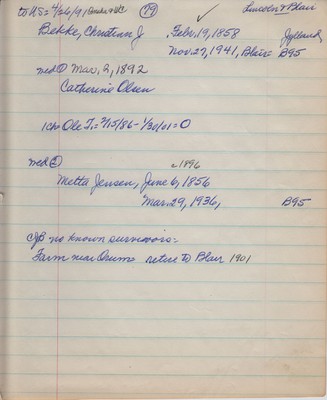 to US = 4/26/91 (19) Lincoln & Blair
Bekke, Christian J Febr. 19, 1858 Jylland
Nov. 27, 1941, Blair B95
med ① Mar. 2, 1892
Catherine Olsen
1 ch: Ole T. = 7/15/86 - 1/30/01 = 0
med ② c 1896
Metta Jensen, June 6, 1856
Mar. 29, 1936, B95
CJB no known survivors =
Farm near Orum retire to Blair 1901